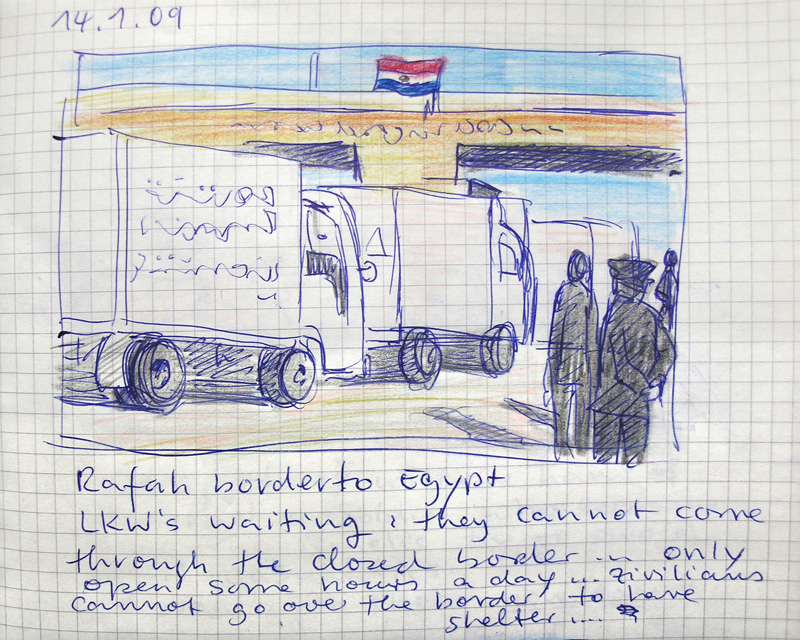 14.1.09
Rafah border to Egypt
LKW's waiting : they cannot come
through the closed border ... only
open some hours a day ... zivilians
cannot go over the border to have
shelter ....